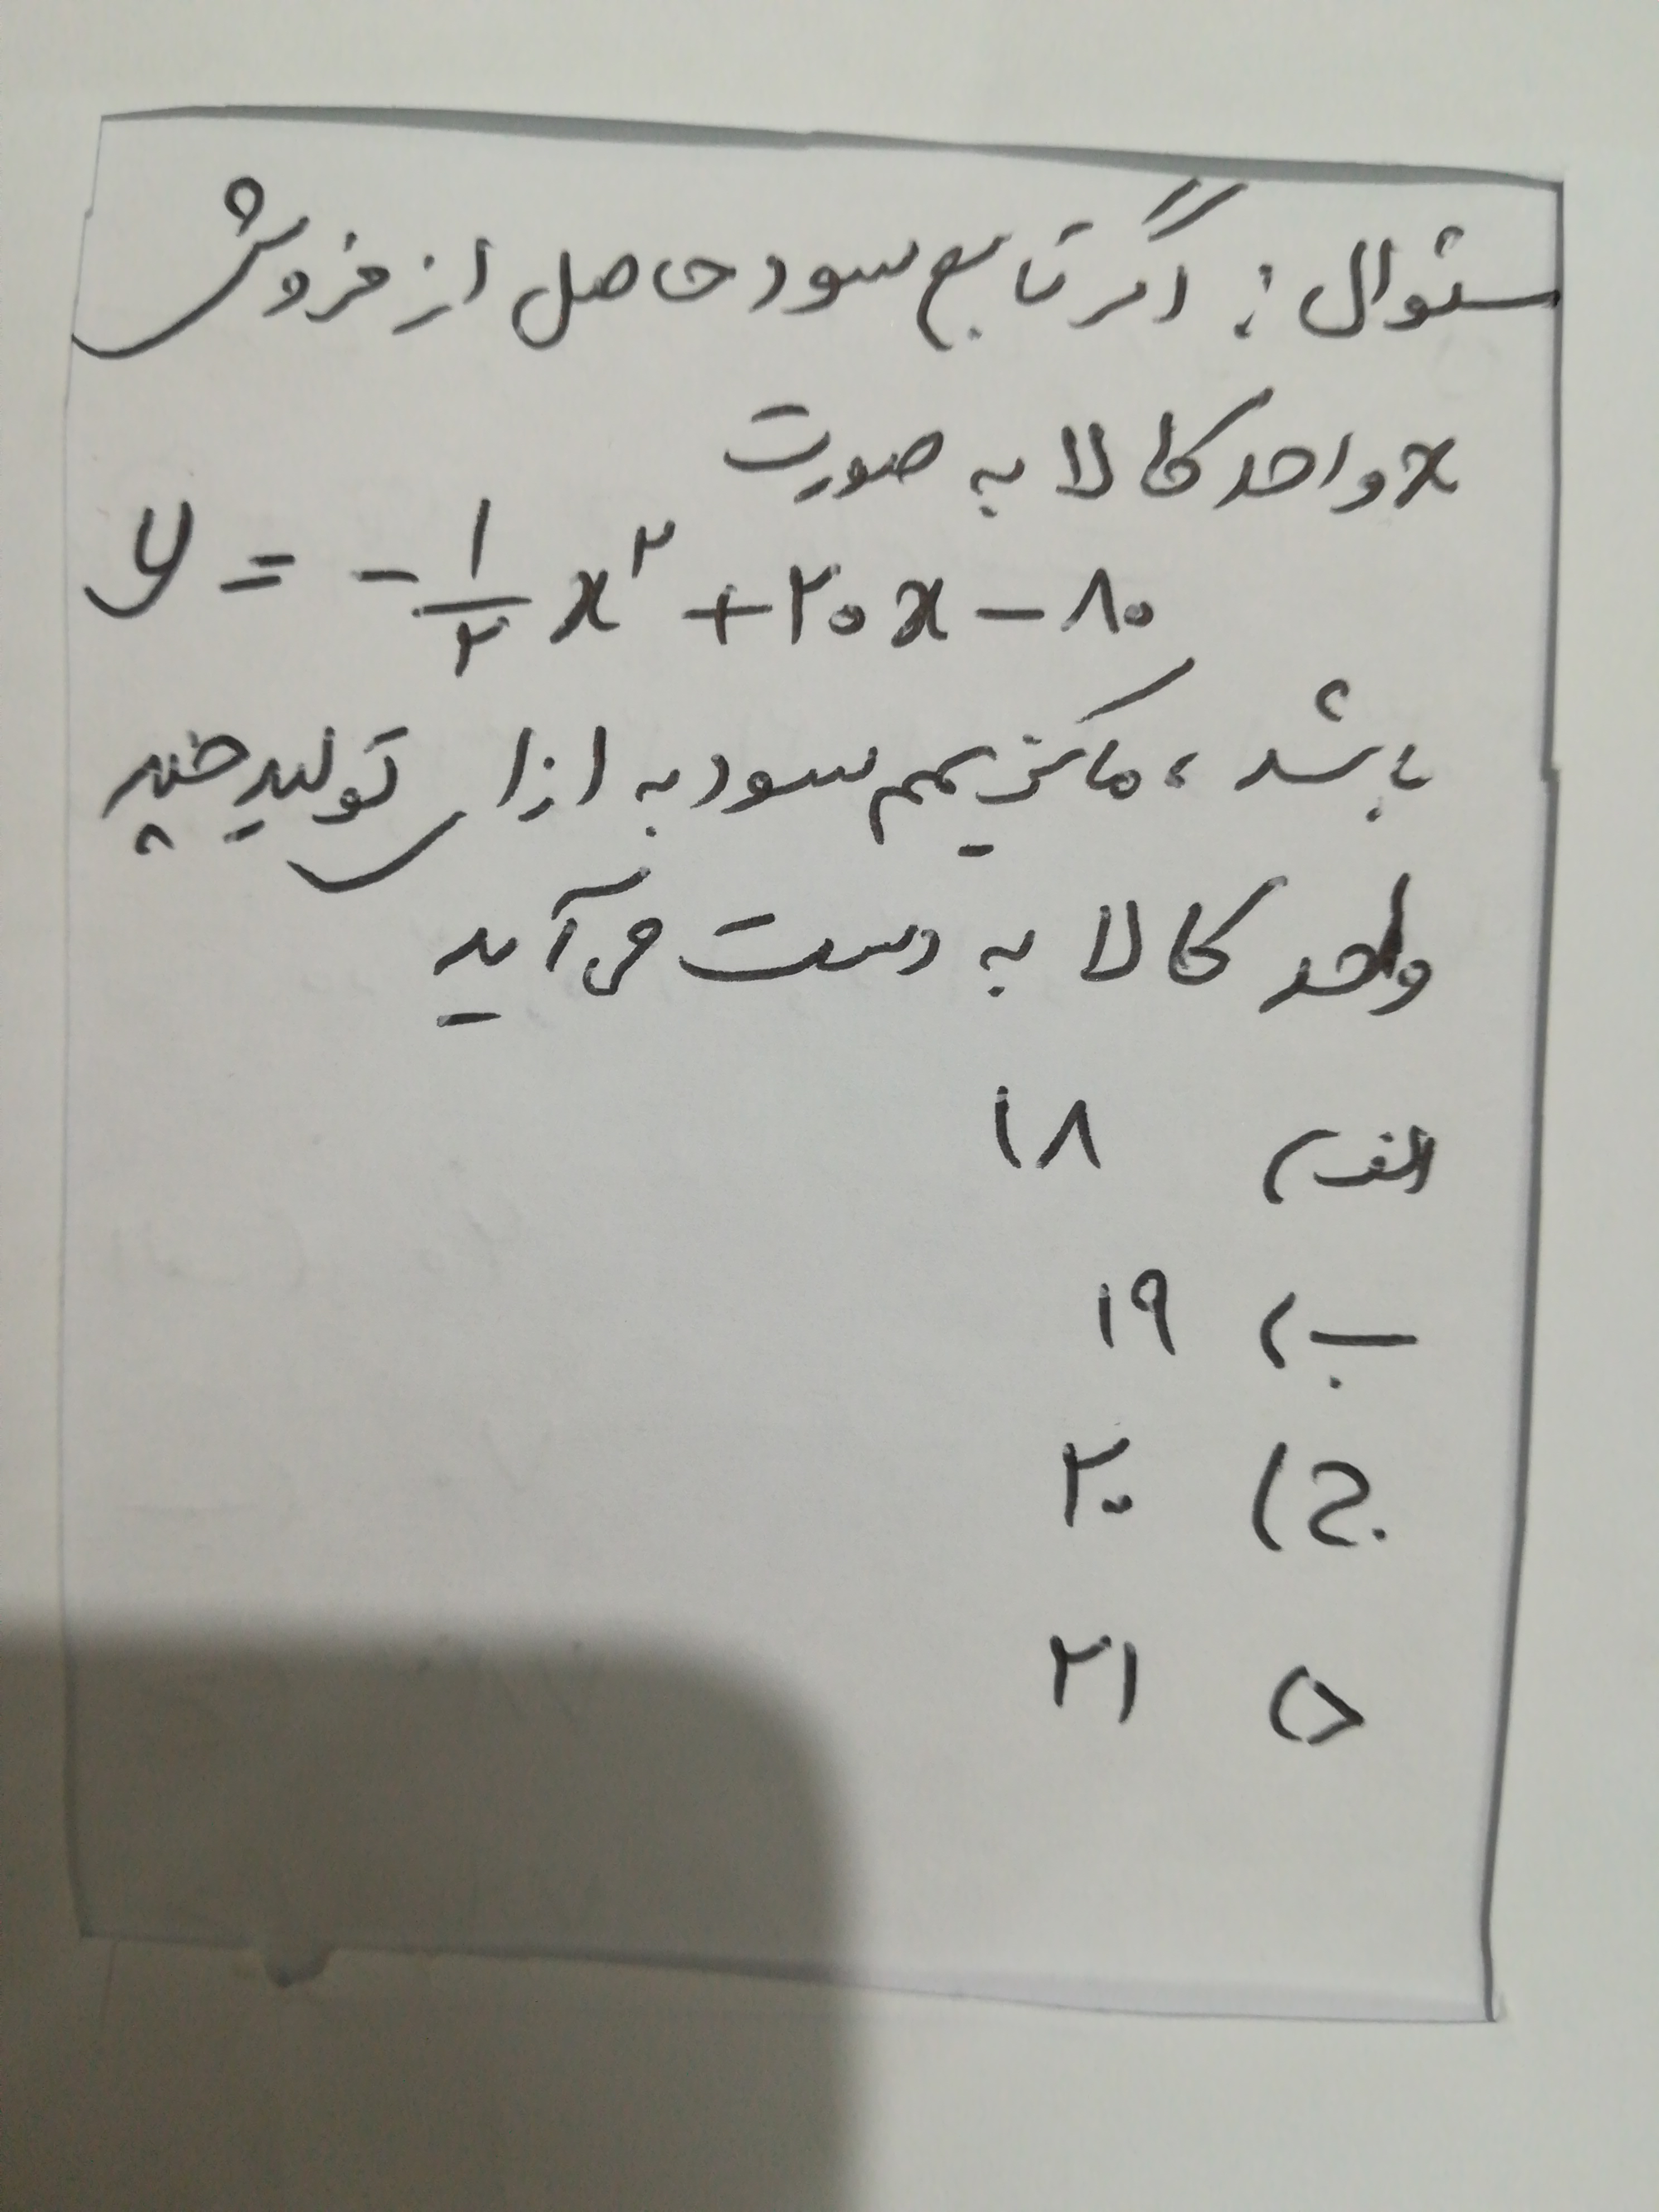 سئوال: اگر تابع سود حاصل از فروش
x واحد کالا به صورت
y = -۱/۲ x^۲ + ۲۰x - ۸۰
باشد، ماکزیمم سود به ازای تولید چند
واحد کالا به دست می‌آید
الف) ۱۸
ب) ۱۹
ج) ۲۰
د) ۲۱